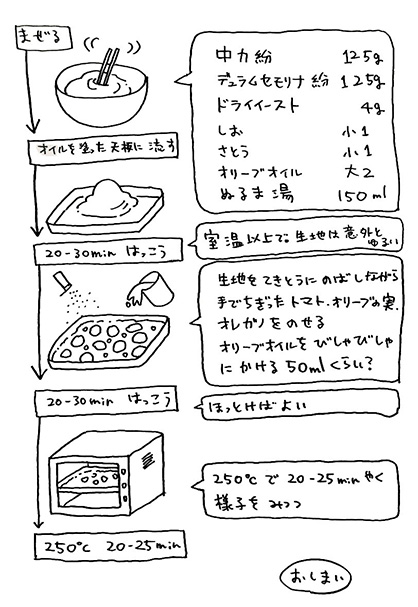 まぜる
中力粉 125g
デュラムセモリナ粉 125g
ドライイースト 4g
しお 小1
さとう 小1
オリーブオイル 大2
ぬるま湯 150ml
オイルを塗った天板に流す
20-30min はっこう
室温以上で。生地は意外とゆるい
生地をてきとうにのばしながら
手でちぎったトマト、オリーブの実
オレガノをのせる
オリーブオイルをびしゃびしゃ
にかける 50mlくらい?
20-30min はっこう
ほっとけばよい
250℃で20-25minやく
様子をみつつ
250℃ 20-25min
おしまい